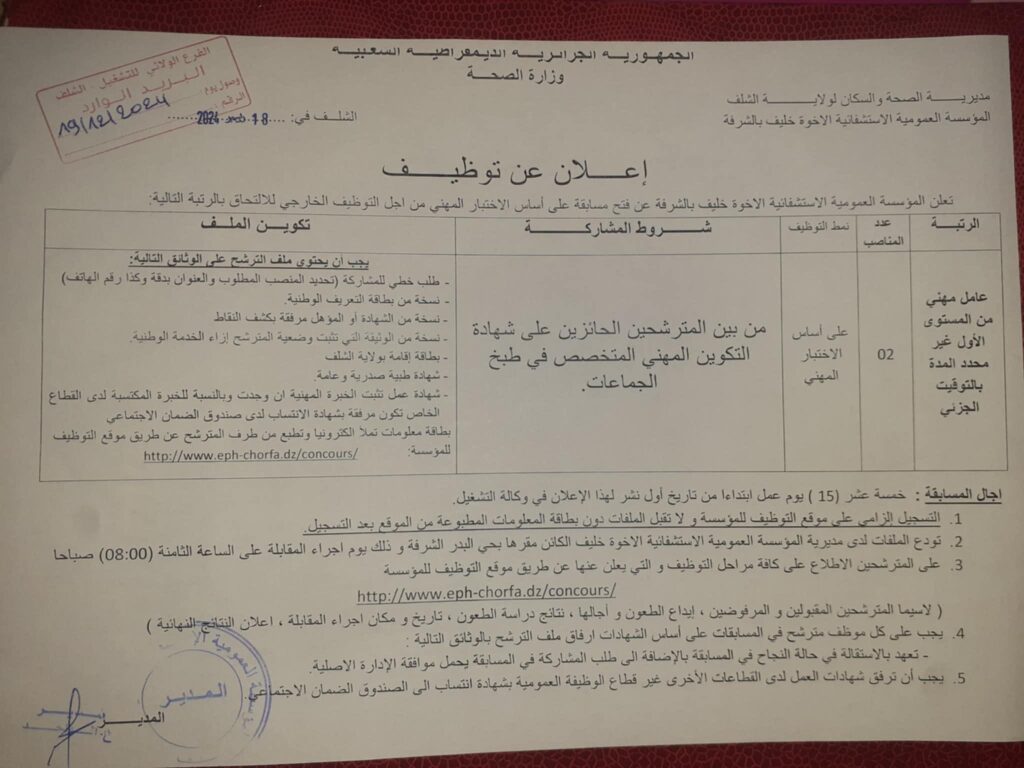 الجمهوريــه الجزائريــه الديمقراطيــه الشعبيــه
وزارة الصحــة
الفرع الولائي للتشغيل الشلف
البريد الوارد
وصول يوم
19/12/2024
الرقم:
مديريـــة الصحة والسكان لولايــــة الشلف
المؤسسة العمومية الاستشفائية الاخوة خليف بالشرفة
الشلف في: 18 ديسمبر 2024
إعــلان عن توظيــف
تعلن المؤسسة العمومية الاستشفائية الاخوة خليف بالشرفة عن فتح مسابقة على أساس الاختبار المهني من اجل التوظيف الخارجي للالتحاق بالرتبة التالية:
الرتبــة
عدد المناصب
نمط التوظيف
شــروط المشاركــــة
تكويـن الملـف
عامل مهني
من المستوى
الأول غير
محدد المدة
بالتوقيت
الجزئي
02
على أساس
الاختبار
المهني
من بين المترشحين الحائزين على شهادة
التكوين المهني المتخصص في طبخ
الجماعات.
يجب ان يحتوي ملف الترشح على الوثائق التالية:
- طلب خطي للمشاركة (تحديد المنصب المطلوب والعنوان بدقة وكذا رقم الهاتف)
- نسخة من بطاقة التعريف الوطنية.
- نسخة من الشهادة أو المؤهل مرفقة بكشف النقاط
- نسخة من الوثيقة التي تثبت وضعية المترشح إزاء الخدمة الوطنية.
- بطاقة إقامة بولاية الشلف
- شهادة طبية صدرية وعامة.
- شهادة عمل تثبت الخبرة المهنية ان وجدت وبالنسبة للخبرة المكتسبة لدى القطاع
الخاص تكون مرفقة بشهادة الانتساب لدى صندوق الضمان الاجتماعي
بطاقة معلومات تملأ الكترونيا وتطبع من طرف المترشح عن طريق موقع التوظيف
للمؤسسة: http://www.eph-chorfa.dz/concours/
اجال المسابقة : خمسة عشر (15 ) يوم عمل ابتداءا من تاريخ أول نشر لهذا الإعلان في وكالة التشغيل.
1. التسجيل إلزامي على موقع التوظيف للمؤسسة و لا تقبل الملفات دون بطاقة المعلومات المطبوعة من الموقع بعد التسجيل.
2. تودع الملفات لدى مديرية المؤسسة العمومية الاستشفائية الاخوة خليف الكائن مقرها بحي البدر الشرفة و ذلك يوم اجراء المقابلة على الساعة الثامنة (08:00) صباحا
3. على المترشحين الاطلاع على كافة مراحل التوظيف و التي يعلن عنها عن طريق موقع التوظيف للمؤسسة
http://www.eph-chorfa.dz/concours/
( لاسيما المترشحين المقبولين و المرفوضين ، إيداع الطعون و أجالها ، نتائج دراسة الطعون ، تاريخ و مكان اجراء المقابلة ، اعلان النتائج النهائية )
4. يجب على كل موظف مترشح في المسابقات على أساس الشهادات ارفاق ملف الترشح بالوثائق التالية :
- تعهد بالاستقالة في حالة النجاح في المسابقة بالإضافة الى طلب المشاركة في المسابقة يحمل موافقة الإدارة الاصلية.
5. يجب أن ترفق شهادات العمل لدى القطاعات الأخرى غير قطاع الوظيفة العمومية بشهادة انتساب الى الصندوق الضمان الاجتماعي
المديـــر
المديـر